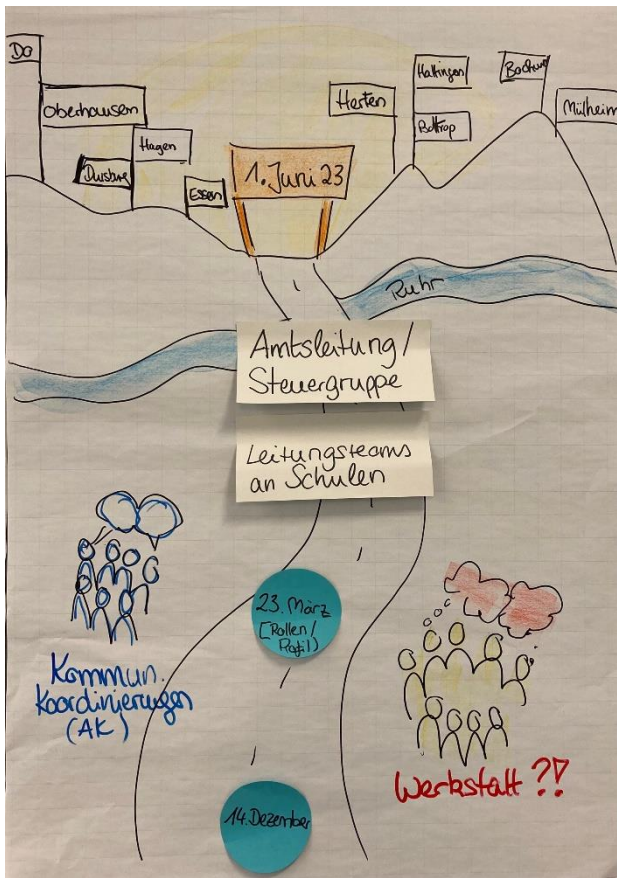 Do
Oberhausen
Hagen
Duisburg
Essen
1. Juni 23
Herten
Hattingen
Bottrop
Bochum
Mülheim
Ruhr
Amtsleitung/
Steuergruppe
Leitungsteams
an Schulen
23. März
[Rollen/
Profil)
Kommun.
Koordinierungen
(AK)
Werkstatt ?!
14. Dezember